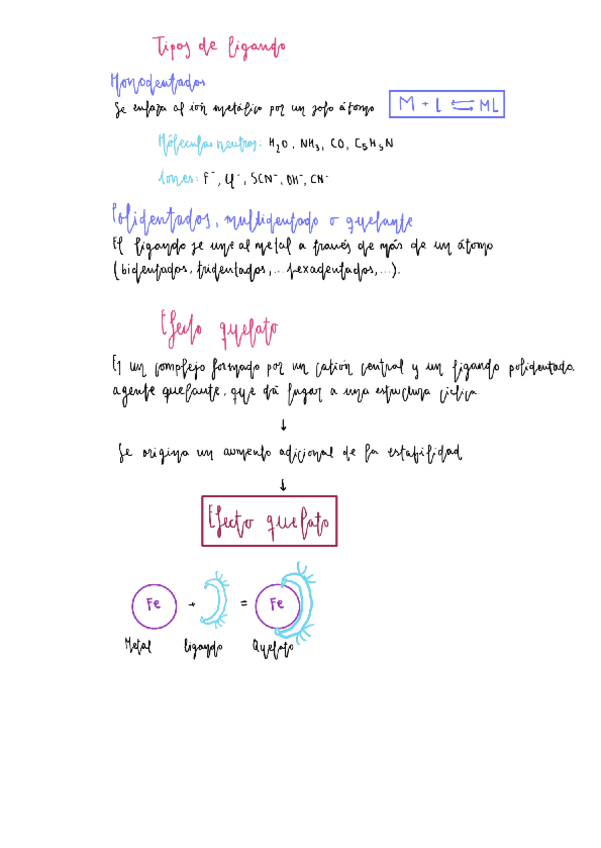 Tipos de ligando
Monodentados
Se enlaza al ión metálico por un solo átomo
M + L ⇆ ML
Móleculas neutras: H₂O, NH₃, CO, C₅H₅N
Iones: F⁻, Cl⁻, SCN⁻, OH⁻, CN⁻
Polidentados, multidentado o quelante
El ligando se une al metal a través de más de un átomo
(bidentados, tridentados, ... hexadentados, ...).
Efecto quelato
Es un complejo formado por un catión central y un ligando polidentado,
agente quelante, que da lugar a una estructura cíclica
↓
Se origina un aumento adicional de la estabilidad
↓
Efecto quelato
Fe + = Fe
Metal ligando Quelato